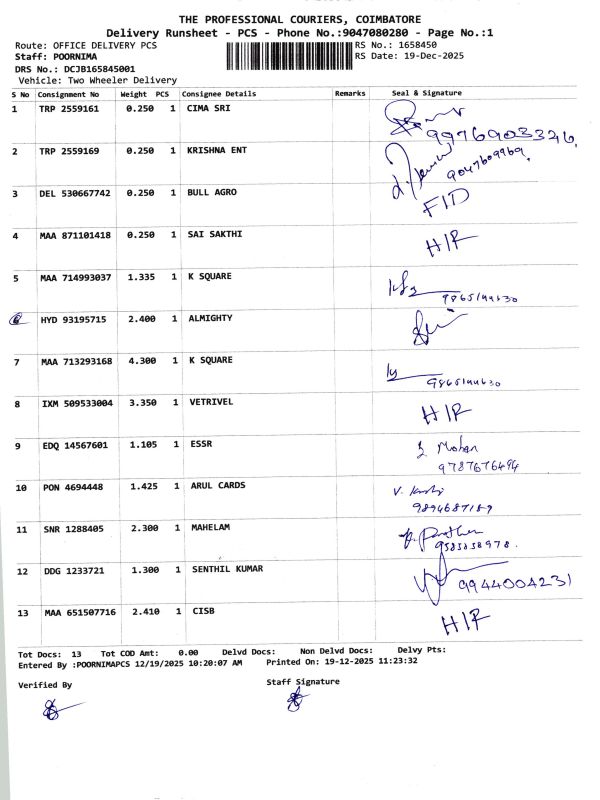 THE PROFESSIONAL COURIERS, COIMBATORE
Delivery Runsheet - PCS - Phone No.:9047080280 - Page No.:1
Route: OFFICE DELIVERY PCS RS No.: 1658450
Staff: POORNIMA RS Date: 19-Dec-2025
DRS No.: DCJB165845001
Vehicle: Two Wheeler Delivery
S No Consignment No Weight PCS Consignee Details Remarks Seal & Signature
1 TRP 2559161 0.250 1 CIMA SRI 9976903326
2 TRP 2559169 0.250 1 KRISHNA ENT 9047609969
3 DEL 530667742 0.250 1 BULL AGRO FID
4 MAA 871101418 0.250 1 SAI SAKTHI H/R
5 MAA 714993037 1.335 1 K SQUARE
6 HYD 93195715 2.400 1 ALMIGHTY
7 MAA 713293168 4.300 1 K SQUARE
8 IXM 509533004 3.350 1 VETRIVEL H/R
9 EDQ 14567601 1.105 1 ESSR Mohan
9787676494
10 PON 4694448 1.425 1 ARUL CARDS
9894687189
11 SNR 1288405 2.300 1 MAHELAM
12 DDG 1233721 1.300 1 SENTHIL KUMAR 9944004231
13 MAA 651507716 2.410 1 CISB H/R
Tot Docs: 13 Tot COD Amt: 0.00 Delvd Docs: Non Delvd Docs: Delvy Pts:
Entered By :POORNIMAPCS 12/19/2025 10:20:07 AM Printed On: 19-12-2025 11:23:32
Verified By Staff Signature